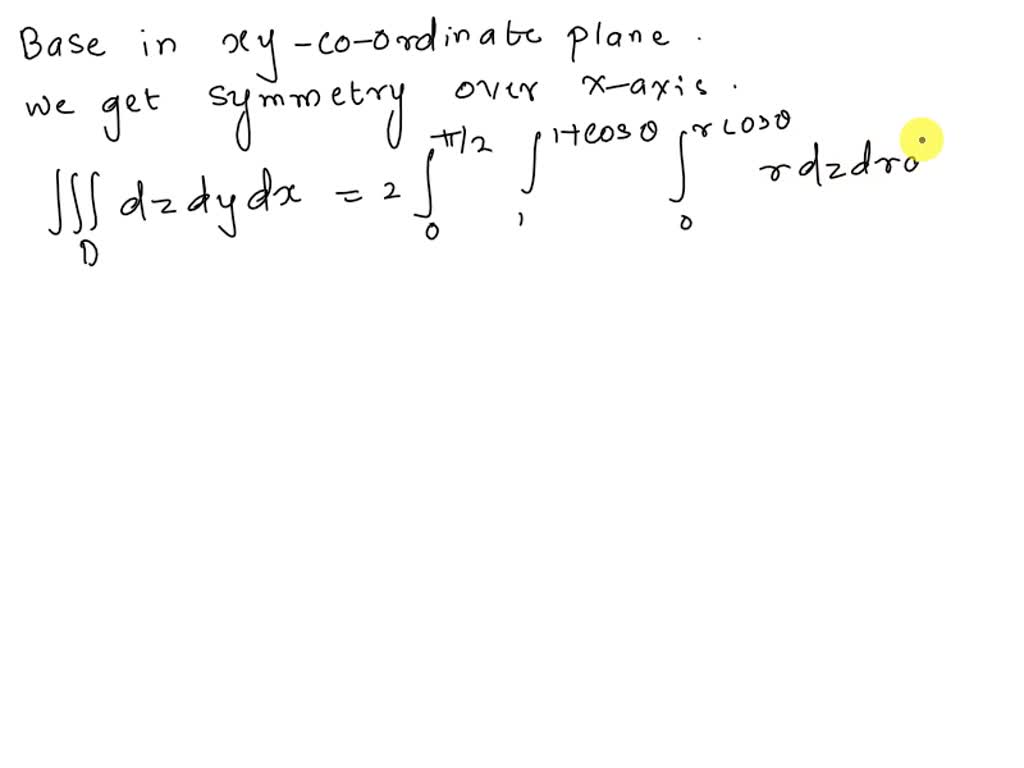 Base in xy-co-ordinate plane.
we get symmetry over x-axis.
∭_D dz dy dx = 2 ∫_0^{π/2} ∫_1^{1+cosθ} ∫_0^{r cosθ} r dz dr